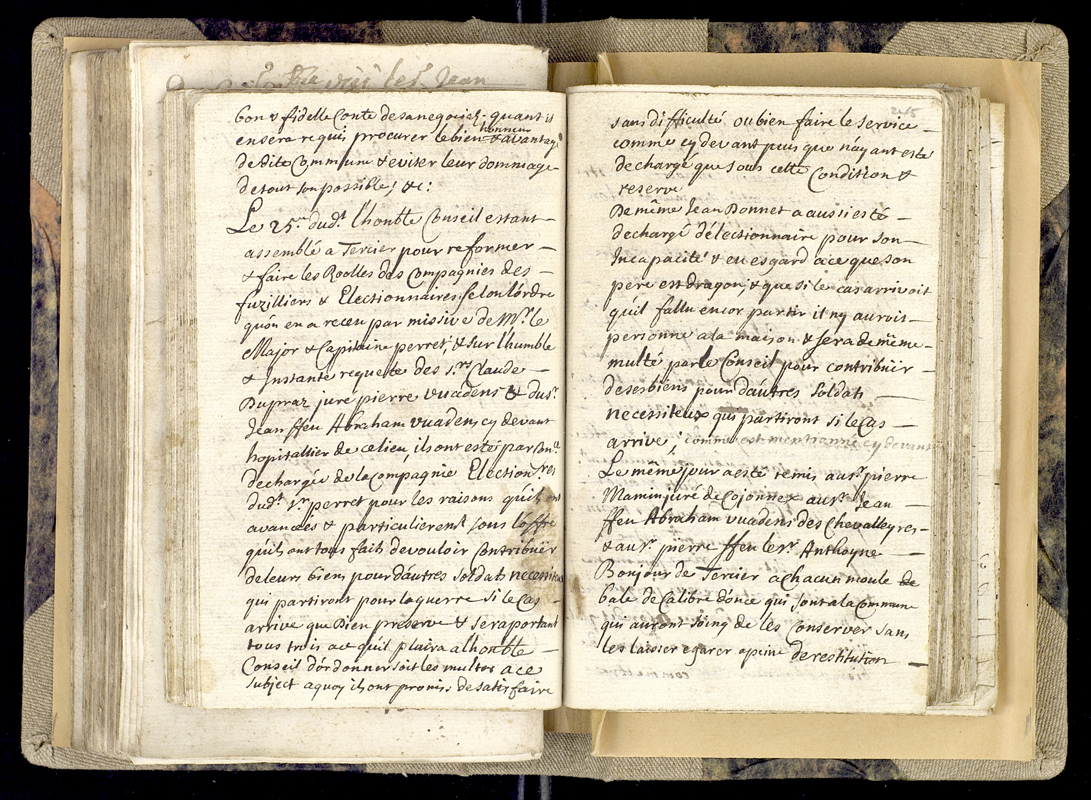 bon & fidelle Conte desanegoief. quant is
ensera requi procurer le bien honneur & avantage
de dite Commune & eviter leur dommage
de tout son possible; &c:
Le 25.e dud.t l'honble Conseil estant
assemblé a Tercier pour reformer
& faire les Roolles des Compagnies des
fuzilliers & Electionnaires selon l'ordre
qu'on en a receu par missive de Mr. le
Major & Capitaine perret, & sur l'humble
& Jnstante requeste des s.rs Claude
Dupraz juré pierre vuadens & du s.r
Jean ffeu Abraham vuadens, cy devant
hospitallier de ce lieu, ils ont esté par
dechargés de la Compagnie Election.res
dud.t s.r perret pour les raisons qu'ils ont
avancées & particulierem.t sous l'offre
qu'ils ont tous faits de vouloir Contribuër
de leurs biens pour d'autres soldats necessit
qui partiront pour la guerre si le Cas
arrive que Dieu preserve & sera portant
tous trois ace qu'il plaira a l'honble
Conseil d'ordonner soit les multer a ce
subject a quoy ils ont promis de satisfaire
sans difficulté ou bien faire le service
comme cy devant puis que n'ayant esté
dechargé que sous cette Condition &
reserve
De même Jean Bonnet a aussi esté
dechargé d'électionnaire pour son
Jncapacité & en esgard a ce que son
pere est dragon, & que si le cas arrivoit
qu'il fallu encor partir il n'y aurois
personne a la maison & sera de même
multé par le Conseil pour contribuër
de ses biens pour d'autres soldats
necessiteux qui partiront si le Cas
arrive, comme est mentionné cy devant
Le même jour a esté remis au s.r pierre
Mamin juré de Cojonnex au s.r Jean
ffeu Abraham vuadens des Chevalleyres
& au s.r pierre ffeu le s.r Anthoyne
Bonjour de Tercier a chacun moule de
bale de Calibre d'once qui sont a la Commune
qui auront soing de les Conserver sans
les laisser egarer a peine de restitution